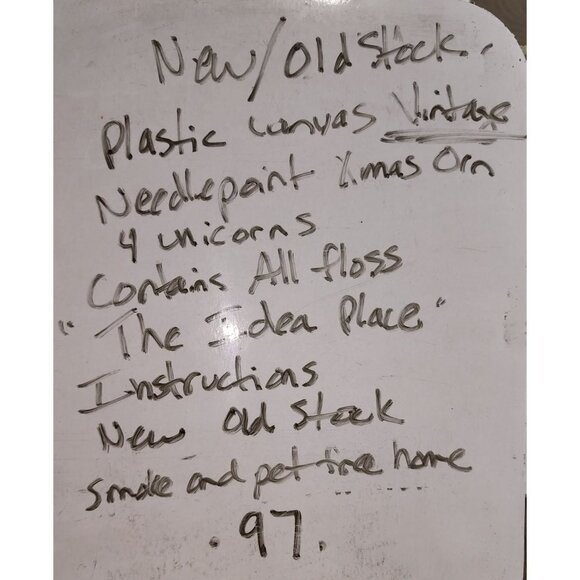 New/Old Stock.
Plastic Canvas Vintage
Needlepoint Xmas Orn
4 unicorns
Contains All floss
"The Idea Place"
Instructions
New Old Stock
Smoke and pet free home
.97.